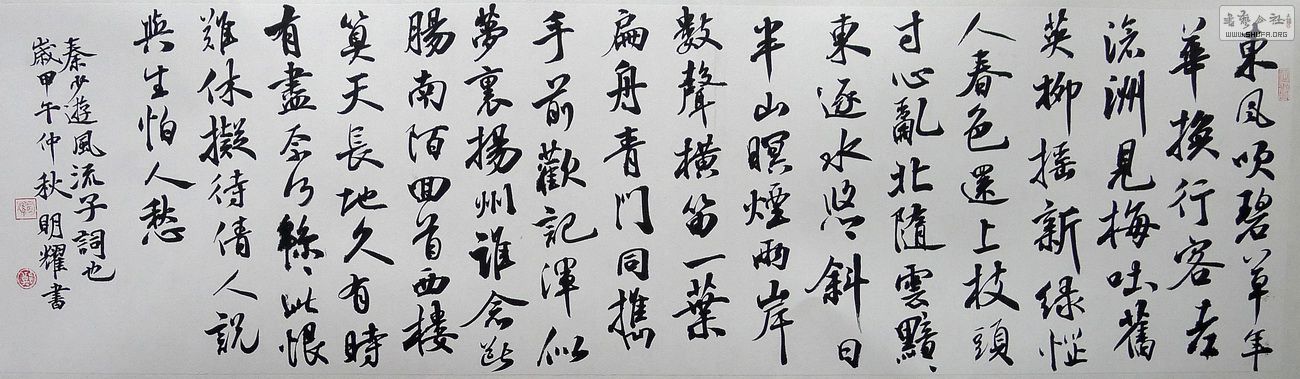 東風吹碧草年
華換行客老
滄洲見梅吐舊
英柳搖新綠惱
人春色還上枝頭
寸心亂北隨雲黯、
東逐水悠、斜日
半山暝煙兩岸
數聲橫笛一葉
扁舟青門同攜
手前歡記渾似
夢裏揚州誰念斷
腸南陌回首西樓
算天長地久有時
有盡奈何綿、此恨
難休擬待倩人說
與生怕人愁
秦少遊風流子詞也
歲甲午仲秋明耀書
書藝公社
WWW.SHUFA.ORG